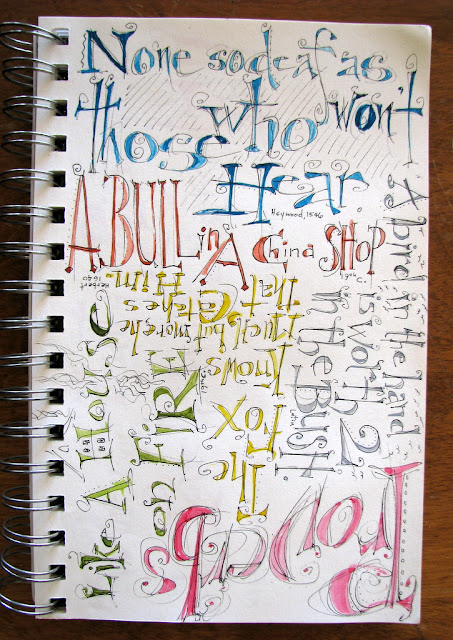 None so deaf as
those who won't
Hear
Heywood, 1546
A BULL in A China SHOP
19th C.
A bird in the hand
is worth 2
in the BUSH.
Latin
The
Fox
knows
Much, but more he
that Catches
Him.
Herbert
1640
Like A House
on FIRE
Proverbs